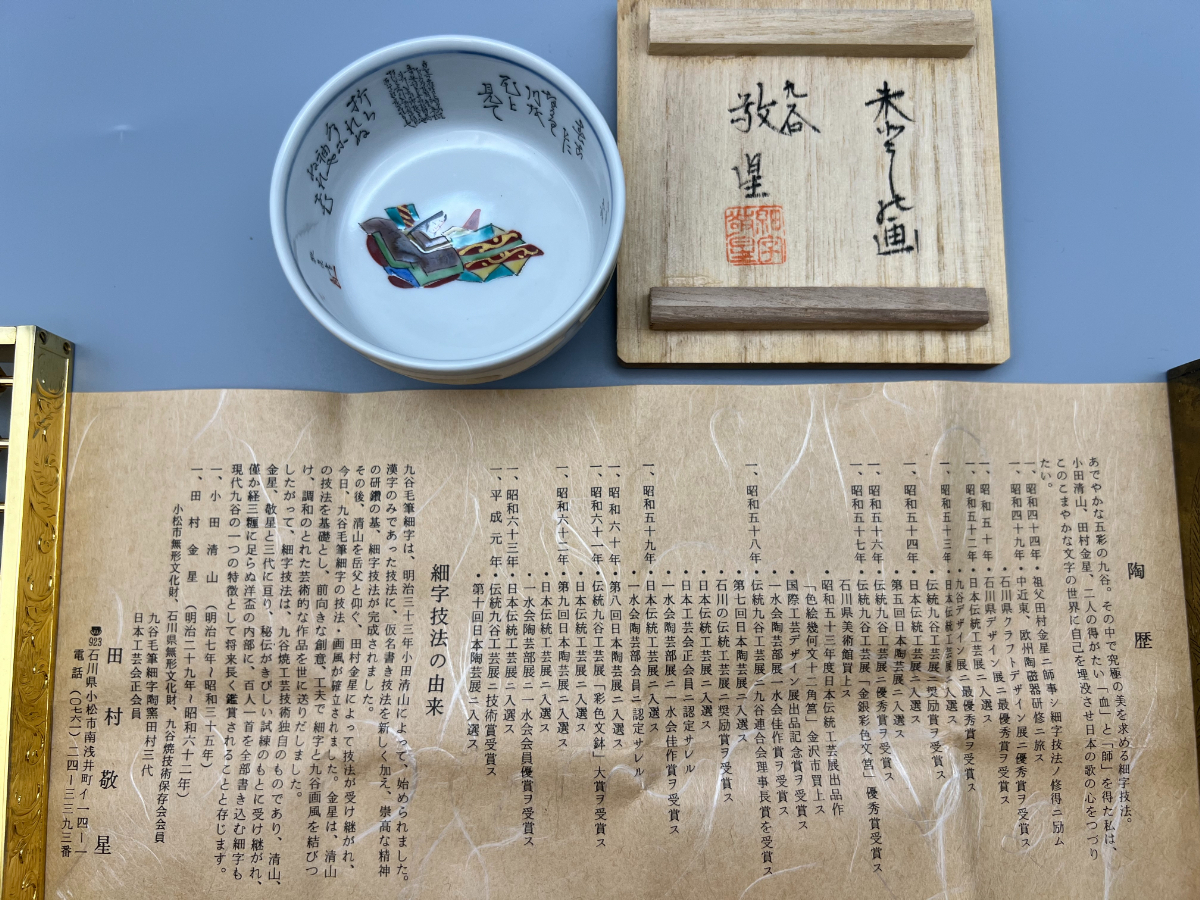 九谷
敬星
細字
敬星
陶歴
あでやかな五彩の九谷。その中で究極の美を求める細字技法。
小田清山、田村金星、二人の得がたい「血」と「師」を得た私は、
このこまやかな文字の世界に自己を埋没させ日本の歌の心をつづり
たい。
一、昭和四十四年・祖父田村金星ニ師事シ細字技法ノ修得ニ励ム
一、昭和四十九年・中近東、欧州陶磁器研修ニ旅ス
・石川県クラフトデザイン展ニ優秀賞ヲ受賞ス
一、昭和五十年・石川県デザイン展ニ最優秀賞ヲ受賞ス
一、昭和五十二年・日本伝統工芸展ニ入選ス
・九谷デザイン展ニ最優秀賞ヲ受賞ス
一、昭和五十三年・日本伝統工芸展ニ入選ス
・伝統九谷工芸展ニ入選ス
一、昭和五十四年・伝統九谷工芸展ニ奨励賞ヲ受賞ス
・第五回日本陶芸展ニ入選ス
一、昭和五十六年・伝統九谷工芸展ニ優秀賞ヲ受賞ス
一、昭和五十七年・伝統九谷工芸展「金銀彩色文筥」優秀賞受賞ス
石川県美術館買上ス
・昭和五十三年度日本伝統工芸展出品作
「色絵幾何文十二角筥」金沢市買上ス
・国際工芸デザイン展出品記念賞ヲ受賞ス
・一水会陶芸部展ニ一水会佳作賞ヲ受賞ス
一、昭和五十八年・伝統九谷工芸展ニ九谷連合会理事長賞ヲ受賞ス
・第七回日本陶芸展ニ入選ス
・石川の伝統工芸展ニ奨励賞ヲ受賞ス
・日本伝統工芸展ニ入選ス
・日本工芸会正会員ニ認定サレル
一、昭和五十九年・日本伝統工芸展ニ入選ス
・一水会陶芸部展ニ一水会佳作賞ヲ受賞ス
・一水会陶芸部会員ニ認定サレル
一、昭和六十年・第八回日本陶芸展ニ入選ス
一、昭和六十一年・伝統九谷工芸展「彩色文鉢」大賞ヲ受賞ス
・日本伝統工芸展ニ入選ス
一、昭和六十二年・第九回日本陶芸展ニ入選ス
・日本伝統工芸展ニ入選ス
・一水会陶芸部展ニ一水会会員優賞ヲ受賞ス
一、昭和六十三年・日本伝統工芸展ニ入選ス
一、平成元年・伝統九谷工芸展ニ技術賞受賞ス
・第十回日本陶芸展ニ入選ス
細字技法の由来
九谷毛筆細字は、明治三十三年小田清山によって、始められました。
漢字のみであった技法に、仮名書き技法を新しく加え、崇高な精神
の研鑽の基、細字技法が完成されました。
その後、清山を岳父と仰ぐ、田村金星によって技法が受け継がれ、
今日、九谷毛筆細字の技法・画風が確立されました。金星は、清山
の技法を基礎とし、前向きな創意、工夫で細字と九谷画風を結びつ
け、調和のとれた芸術的な作品を世に送りだしました。
したがって、細字技法は、九谷焼工芸技術独自のものであり、清山、
金星、敬星と三代に亘り、秘伝がきびしい試練のもとに受け継がれ、
僅か経三糎に足らぬ洋盃の内部に、百人一首を全部書き込む細字も
現代九谷の一つの特徴として将来長く鑑賞されることと存じます。
一、小田清山（明治七年〜昭和三十五年）
一、田村金星（明治二十九年〜昭和六十二年）
小松市無形文化財、石川県無形文化財、九谷焼技術保存会会員
九谷毛筆細字陶窯田村三代
日本工芸会正会員
田村敬星
〠923石川県小松市南浅井町イ一四ー一
電話（〇七六一）二四ー三三九三番